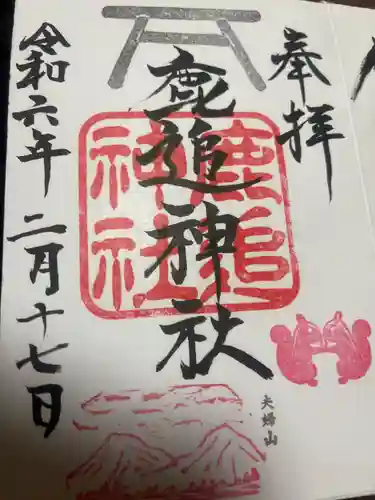 奉拝
鹿追神社
鹿追
神社
令和六年二月十七日
夫婦山